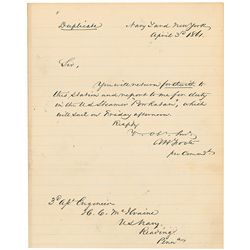 Duplicate
Navy Yard New York
April 3d 1861.
Sir,
You will return forthwith to
this Station and report to me for duty
in the U.S. Steamer Powhatan, which
will sail on Friday afternoon.
Respy
A H Foote
3d Asst Engineer
H. C. McIlvaine
U.S. Navy
Reading
Penn